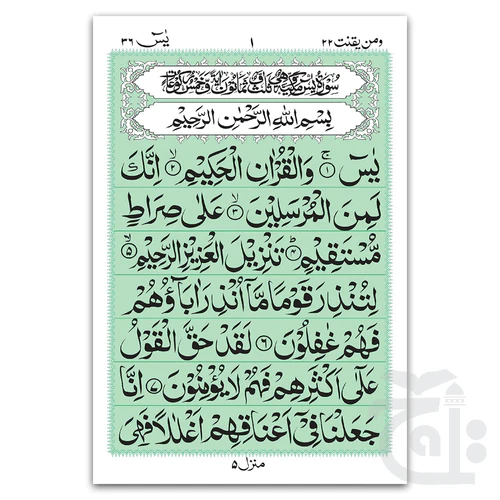 ومن یقنت ٢٢
١
یٰسٓ ٣٦
سُوْرَةُ یٰسٓ مَكِّیَّةٌ وَّهِیَ ثَلٰثٌ وَّثَمَانُوْنَ اٰیَةً وَّخَمْسُ رُكُوْعَاتٍ
بِسْمِ اللهِ الرَّحْمٰنِ الرَّحِیْمِ
یٰسٓ ۚ ﴿١﴾ وَالْقُرْاٰنِ الْحَكِیْمِ ۙ ﴿٢﴾ اِنَّكَ
لَمِنَ الْمُرْسَلِیْنَ ۙ ﴿٣﴾ عَلٰی صِرَاطٍ
مُّسْتَقِیْمٍ ؕ ﴿٤﴾ تَنْزِیْلَ الْعَزِیْزِ الرَّحِیْمِ ۙ ﴿٥﴾
لِتُنْذِرَ قَوْمًا مَّاۤ اُنْذِرَ اٰبَآؤُهُمْ
فَهُمْ غٰفِلُوْنَ ﴿٦﴾ لَقَدْ حَقَّ الْقَوْلُ
عَلٰۤی اَكْثَرِهِمْ فَهُمْ لَا یُؤْمِنُوْنَ ﴿٧﴾ اِنَّا
جَعَلْنَا فِیْۤ اَعْنَاقِهِمْ اَغْلٰلًا فَهِیَ
منزل ٥